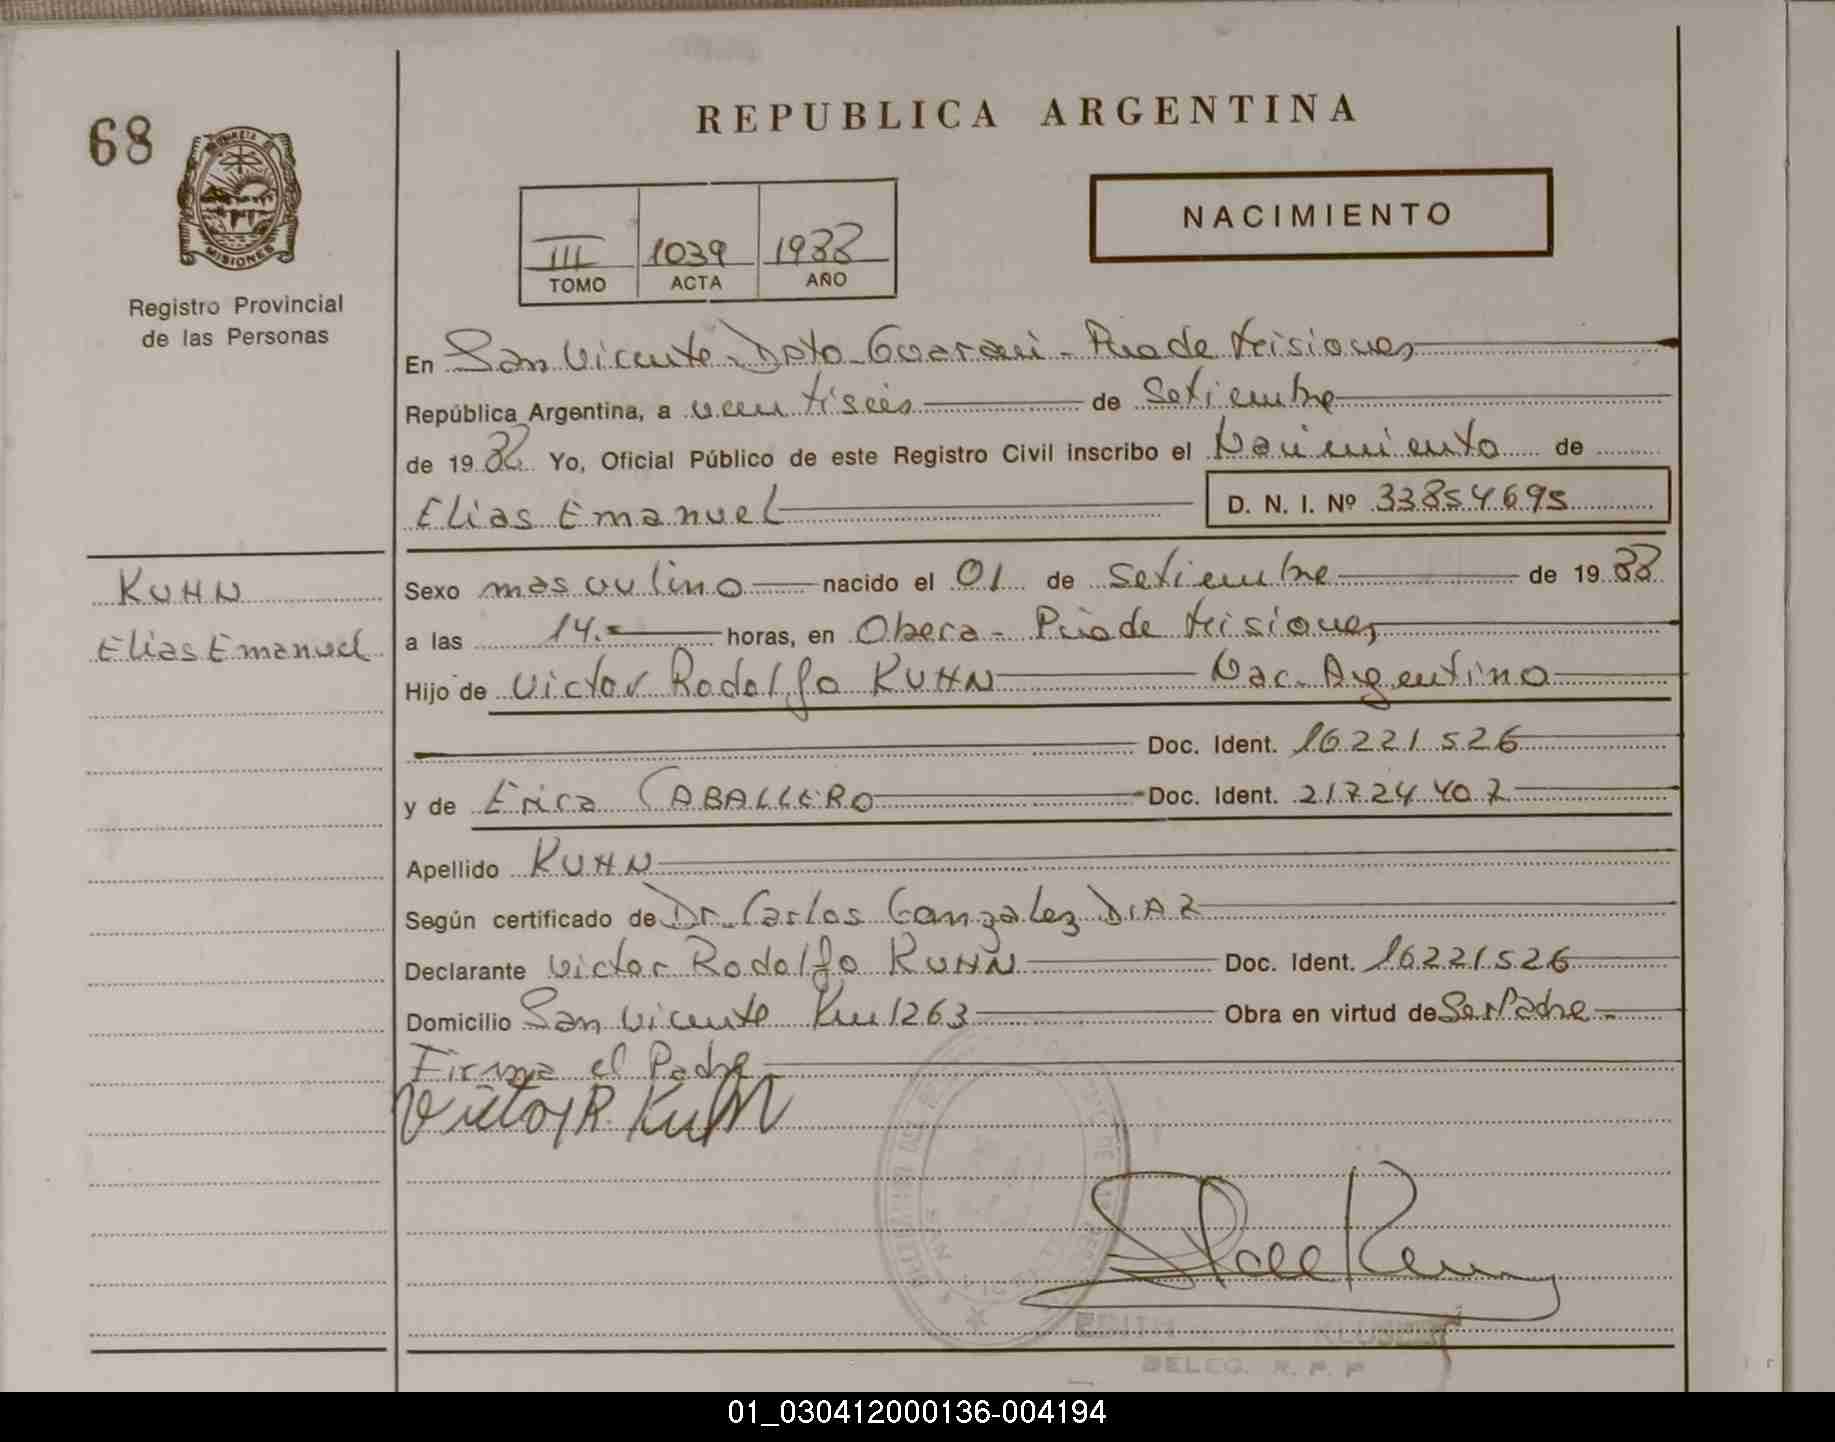 68
REPUBLICA ARGENTINA
NACIMIENTO
MISIONES
Registro Provincial
de las Personas
III 1039 1988
TOMO ACTA AÑO
En San Vicente Dpto Guarani - Pcia de Misiones
República Argentina, a veintiseis de Setiembre
de 1988 Yo, Oficial Público de este Registro Civil inscribo el Nacimiento de
Elias Emanuel D. N. I. Nº 33854695
KUHN
Elias Emanuel
Sexo masculino nacido el 01 de Setiembre de 1988
a las 14.- horas, en Obera - Pcia de Misiones
Hijo de Victor Rodolfo KUHN Nac. Argentino
Doc. Ident. 16221526
y de Erica CABALLERO Doc. Ident. 21724407
Apellido KUHN
Según certificado de Dr. Carlos Gonzalez DIAZ
Declarante Victor Rodolfo KUHN Doc. Ident. 16221526
Domicilio San Vicente Km 1263 Obra en virtud de Ser Padre -
Firma el Padre
Victor R. Kuhn
EDITH
DELEG. R. P. P
01_030412000136-004194